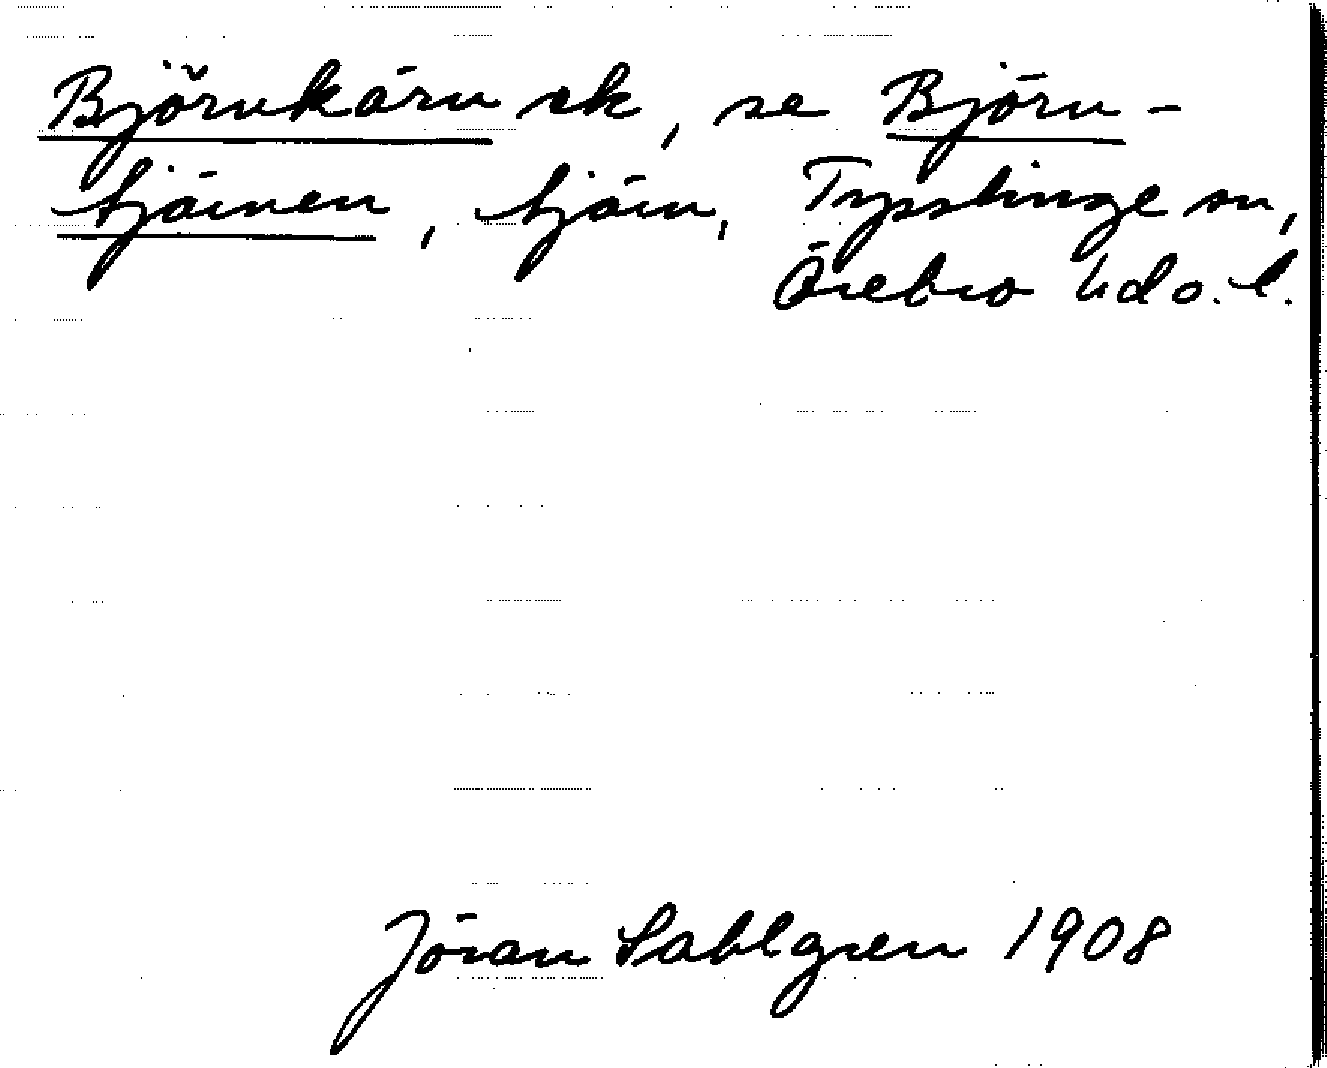 Björnkärn ek, se Björn-
tjärnen, tjärn, Tysslinge sn,
Örebro hd o. l.
Jöran Sahlgren 1908